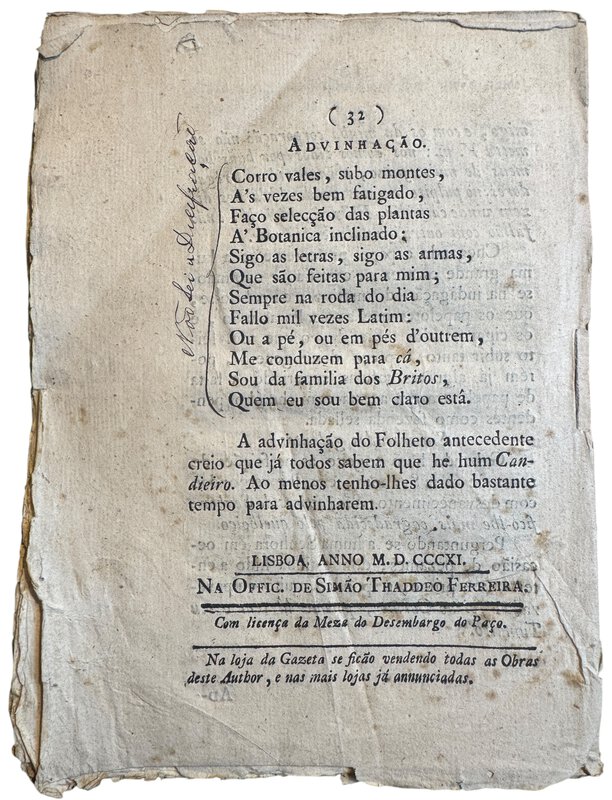 ( 32 )
ADVINHAÇÃO.
Corro vales, subo montes,
A's vezes bem fatigado,
Faço selecção das plantas
A' Botanica inclinado;
Sigo as letras, sigo as armas,
Que são feitas para mim;
Sempre na roda do dia
Fallo mil vezes Latim:
Ou a pé, ou em pés d'outrem,
Me conduzem para cá,
Sou da familia dos Britos,
Quem eu sou bem claro está.
A advinhação do Folheto antecedente
creio que já todos sabem que he hum Can-
dieiro. Ao menos tenho-lhes dado bastante
tempo para advinharem.
LISBOA, ANNO M. D. CCCXI.
NA OFFIC. DE SIMÃO THADDEO FERREIRA.
Com licença da Meza do Desembargo do Paço.
Na loja da Gazeta se ficão vendendo todas as Obras
deste Author, e nas mais lojas já annunciadas.
Não Sei a